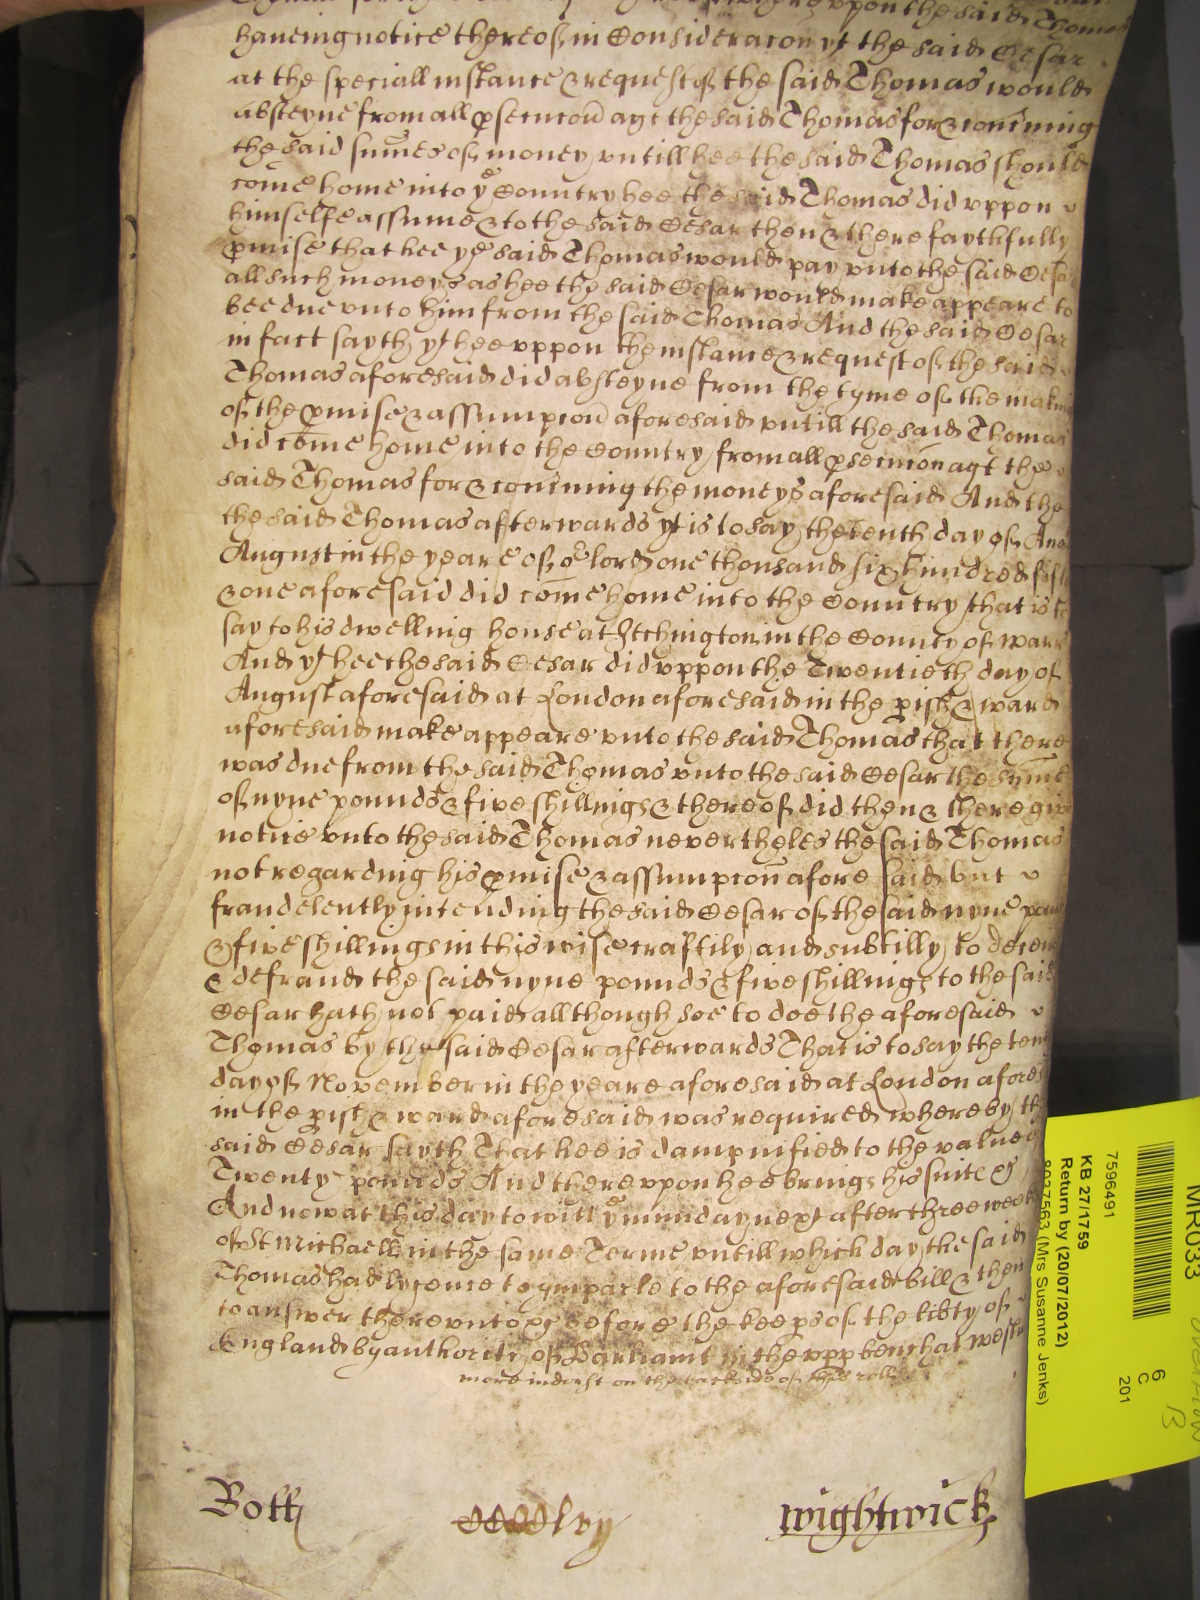 vppon the said Thomas
haueing notice thereof in Consideracon yt the said Cesar
at the speciall instance & request of the said Thomas would
absteyne from all psecucon agt the said Thomas for & conc'ning
the said sumes of money vntill hee the said Thomas should
come home into ye Country hee the said Thomas did vppon
himselfe assume & to the said Cesar then & there faythfully
pmise that hee ye said Thomas would pay vnto the said Cesar
all such moneys as hee the said Cesar would make appeare to
bee due vnto him from the said Thomas And the said Cesar
in fact sayth yt hee vppon the instance & request of the said
Thomas aforesaid did absteyne from the tyme of the makin
of the pmise & assumpcon aforesaid vntill the said Thomas
did come home into the Country from all psecucon agt the
said Thomas for & conc'ning the moneys aforesaid And the
the said Thomas afterwards yt is to say the tenth day of Aug
August in the yeare of or lord one thousand six hundred fift
& one aforesaid did come home into the Country that is to
say to his dwelling house at Itchington in the County of warr
And yt hee the said Cesar did vppon the Twentieth day of
August aforesaid at London aforesaid in the pish & ward
aforesaid make appeare vnto the said Thomas that there
was due from the said Thomas vnto the said Cesar the sume
of nyne pounds & five shillings & thereof did then & there give
notice vnto the said Thomas neverthelés the said Thomas
not regarding his pmise & assumpcon afore said but
fraudelently intending the said Cesar of the said nyne pou
& five shillings in this wise craftily and subtilly to deceiv
& defraud the said nyne pounds & five shillings to the said
Cesar hath not paid allthough soe to doe the aforesaid
Thomas by the said Cesar afterwards That is to say the ten
day of November in the yeare aforesaid at London afores
in the pish & ward aforesaid was required whereby th
said Cesar sayth That hee is dampnified to the value of
Twenty pounds And therevpon hee brings his suite &
And now at this day to witt ye munday next after three week
of St Michaell in the same Terme vntill which day the said
Thomas had lycence to ymparle to the aforesaid bill & then
to answer therevnto &c before the keeps of the libty of
England by authority of Parliamt in the vpp bench at westm
more indorst on the backside of this roll
Bott
Wightwick
MR033
7596491
KB 27/1759
Return by (20/07/2012)
(Mrs Susanne Jenks)
6
C
201